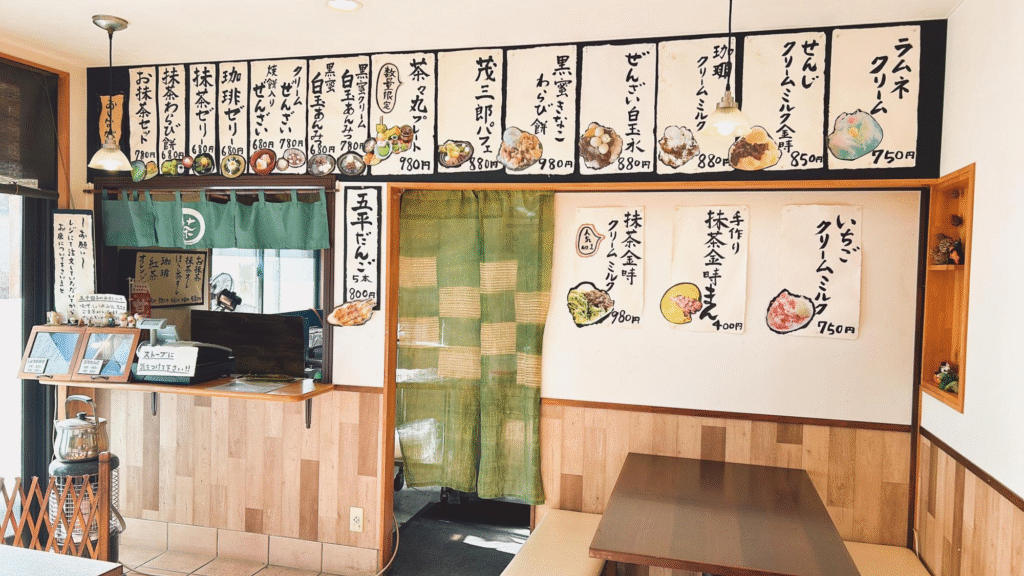 ラムネ
クリーム
750円
せんじ
クリームミルク金時
850円
珈琲
クリームミルク
880円
ぜんざい白玉氷
880円
黒蜜きなこ
わらび餅
880円
茂三郎パフェ
880円
茶々丸プレート
数量限定
980円
黒蜜クリーム
白玉あんみつ
黒蜜
白玉あんみつ
クリーム
ぜんざい
焼餅入り
ぜんざい
珈琲ゼリー
抹茶ゼリー
抹茶わらび餅
お抹茶セット
五平だんご
5本
800円
いちご
クリームミルク
750円
手作り
抹茶金時まん
400円
抹茶金時
クリームミルク
980円
お抹茶
珈琲
紅茶
お願い
ストーブに
気をつけて下さい!!